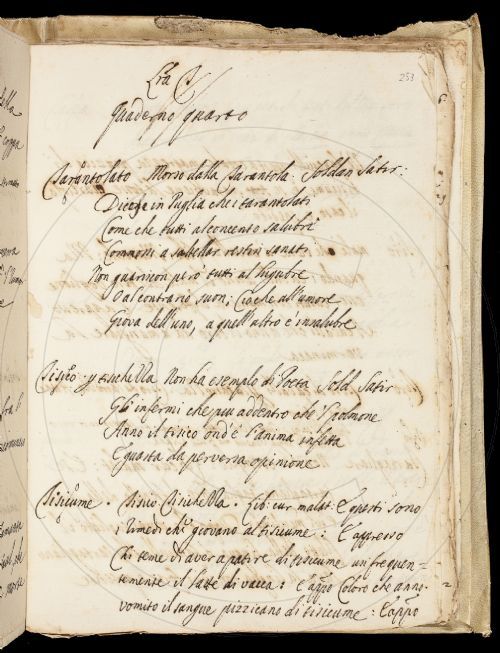 253
Lra T
Quaderno quarto
Tarantolato Morso dalla Tarantola. Soldan Satir:
Dicesi in Puglia che i tarantolati
Come che tutti al concento salubri
Commossi a saltellar restin sanati:
Non guariscon però tutti al lugubre
O al contrario suon; Ciò che all'umore
Giova dell'uno, a quell'altro è insalubre
Tisico. v. tisichella Non ha esemplo di Poeta Sold. Satir
Gli infermi che più addentro che 'l polmone
Anno il tisico ond'è l'anima infetta
E guasta da perversa opinione
Tisicume. Tisico Tisichella. Lib: cur malat: E questi sono
i rimedi che giovano al tisicume: E appresso
Chi teme di aver a patire di tisicume usi frequen=
temente il latte di vacca: E appo Coloro che anno
vomito il sangue pizzicano di tisicume: E appo